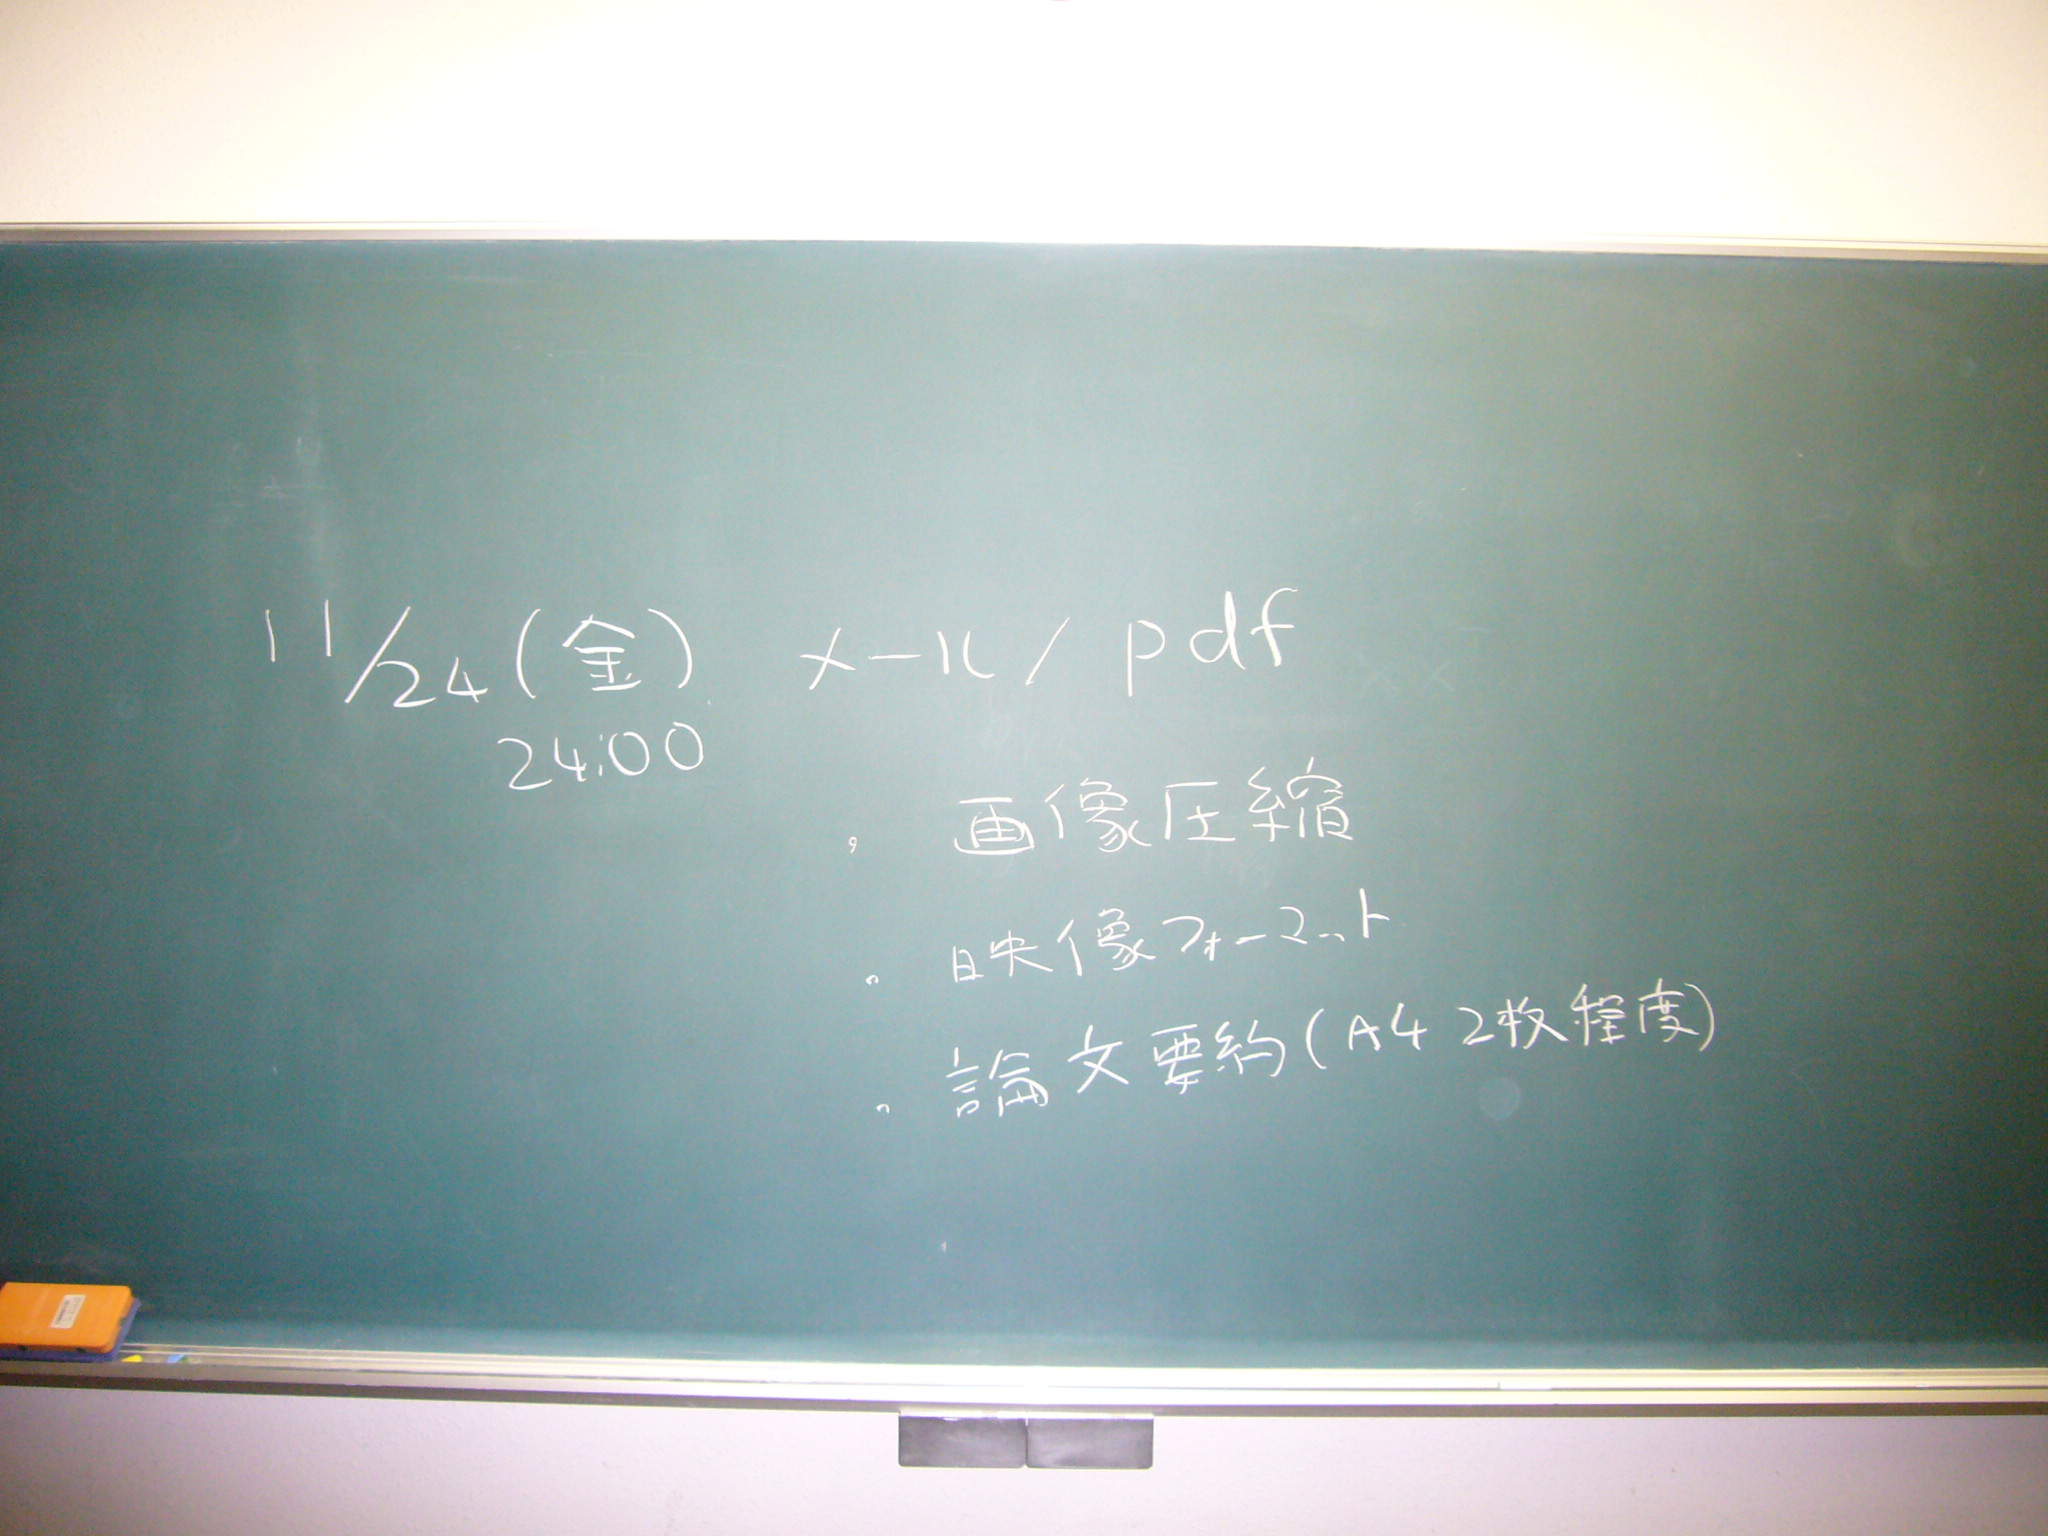 11/24(金) メール/pdf
24:00
・ 画像圧縮
・ 映像フォーマット
・ 論文要約(A4 2枚程度)